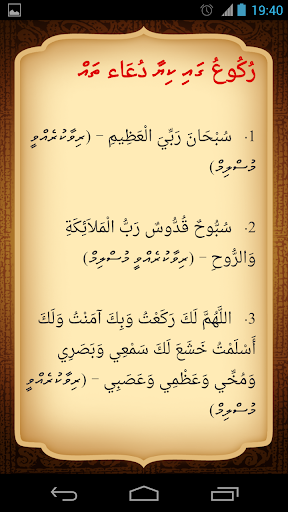 19:40
رُكُوعُ ގައި ކިޔާ دُعَاء ތައް
1. سُبْحَانَ رَبِّيَ الْعَظِيمِ – (ރިވާކުރެއްވީ
މުސްލިމް)
2. سُبُّوحٌ قُدُّوسٌ رَبُّ الْمَلَائِكَةِ
وَالرُّوحِ – (ރިވާކުރެއްވީ މުސްލިމް)
3. اللَّهُمَّ لَكَ رَكَعْتُ وَبِكَ آمَنْتُ وَلَكَ
أَسْلَمْتُ خَشَعَ لَكَ سَمْعِي وَبَصَرِي
وَمُخِّي وَعَظْمِي وَعَصَبِي – (ރިވާކުރެއްވީ
މުސްލިމް)